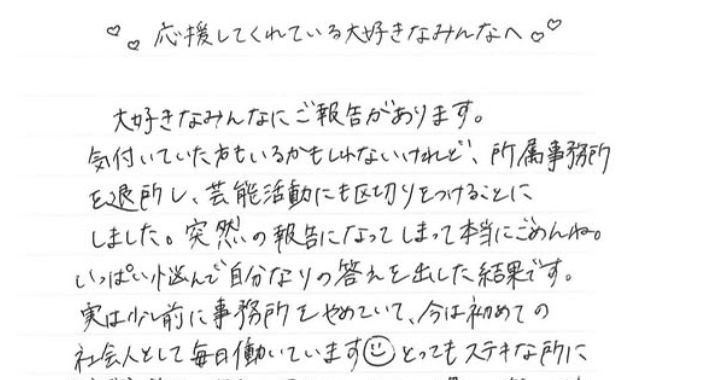 応援してくれている大好きなみんなへ
大好きなみんなにご報告があります。
気付いていた方もいるかもしれないけれど、所属事務所
を退所し、芸能活動にも区切りをつけることに
しました。突然の報告になってしまって本当にごめんね。
いっぱい悩んで自分なりの答えを出した結果です。
実は少し前に事務所をやめていて、今は初めての
社会人として毎日働いています とってもステキな所に